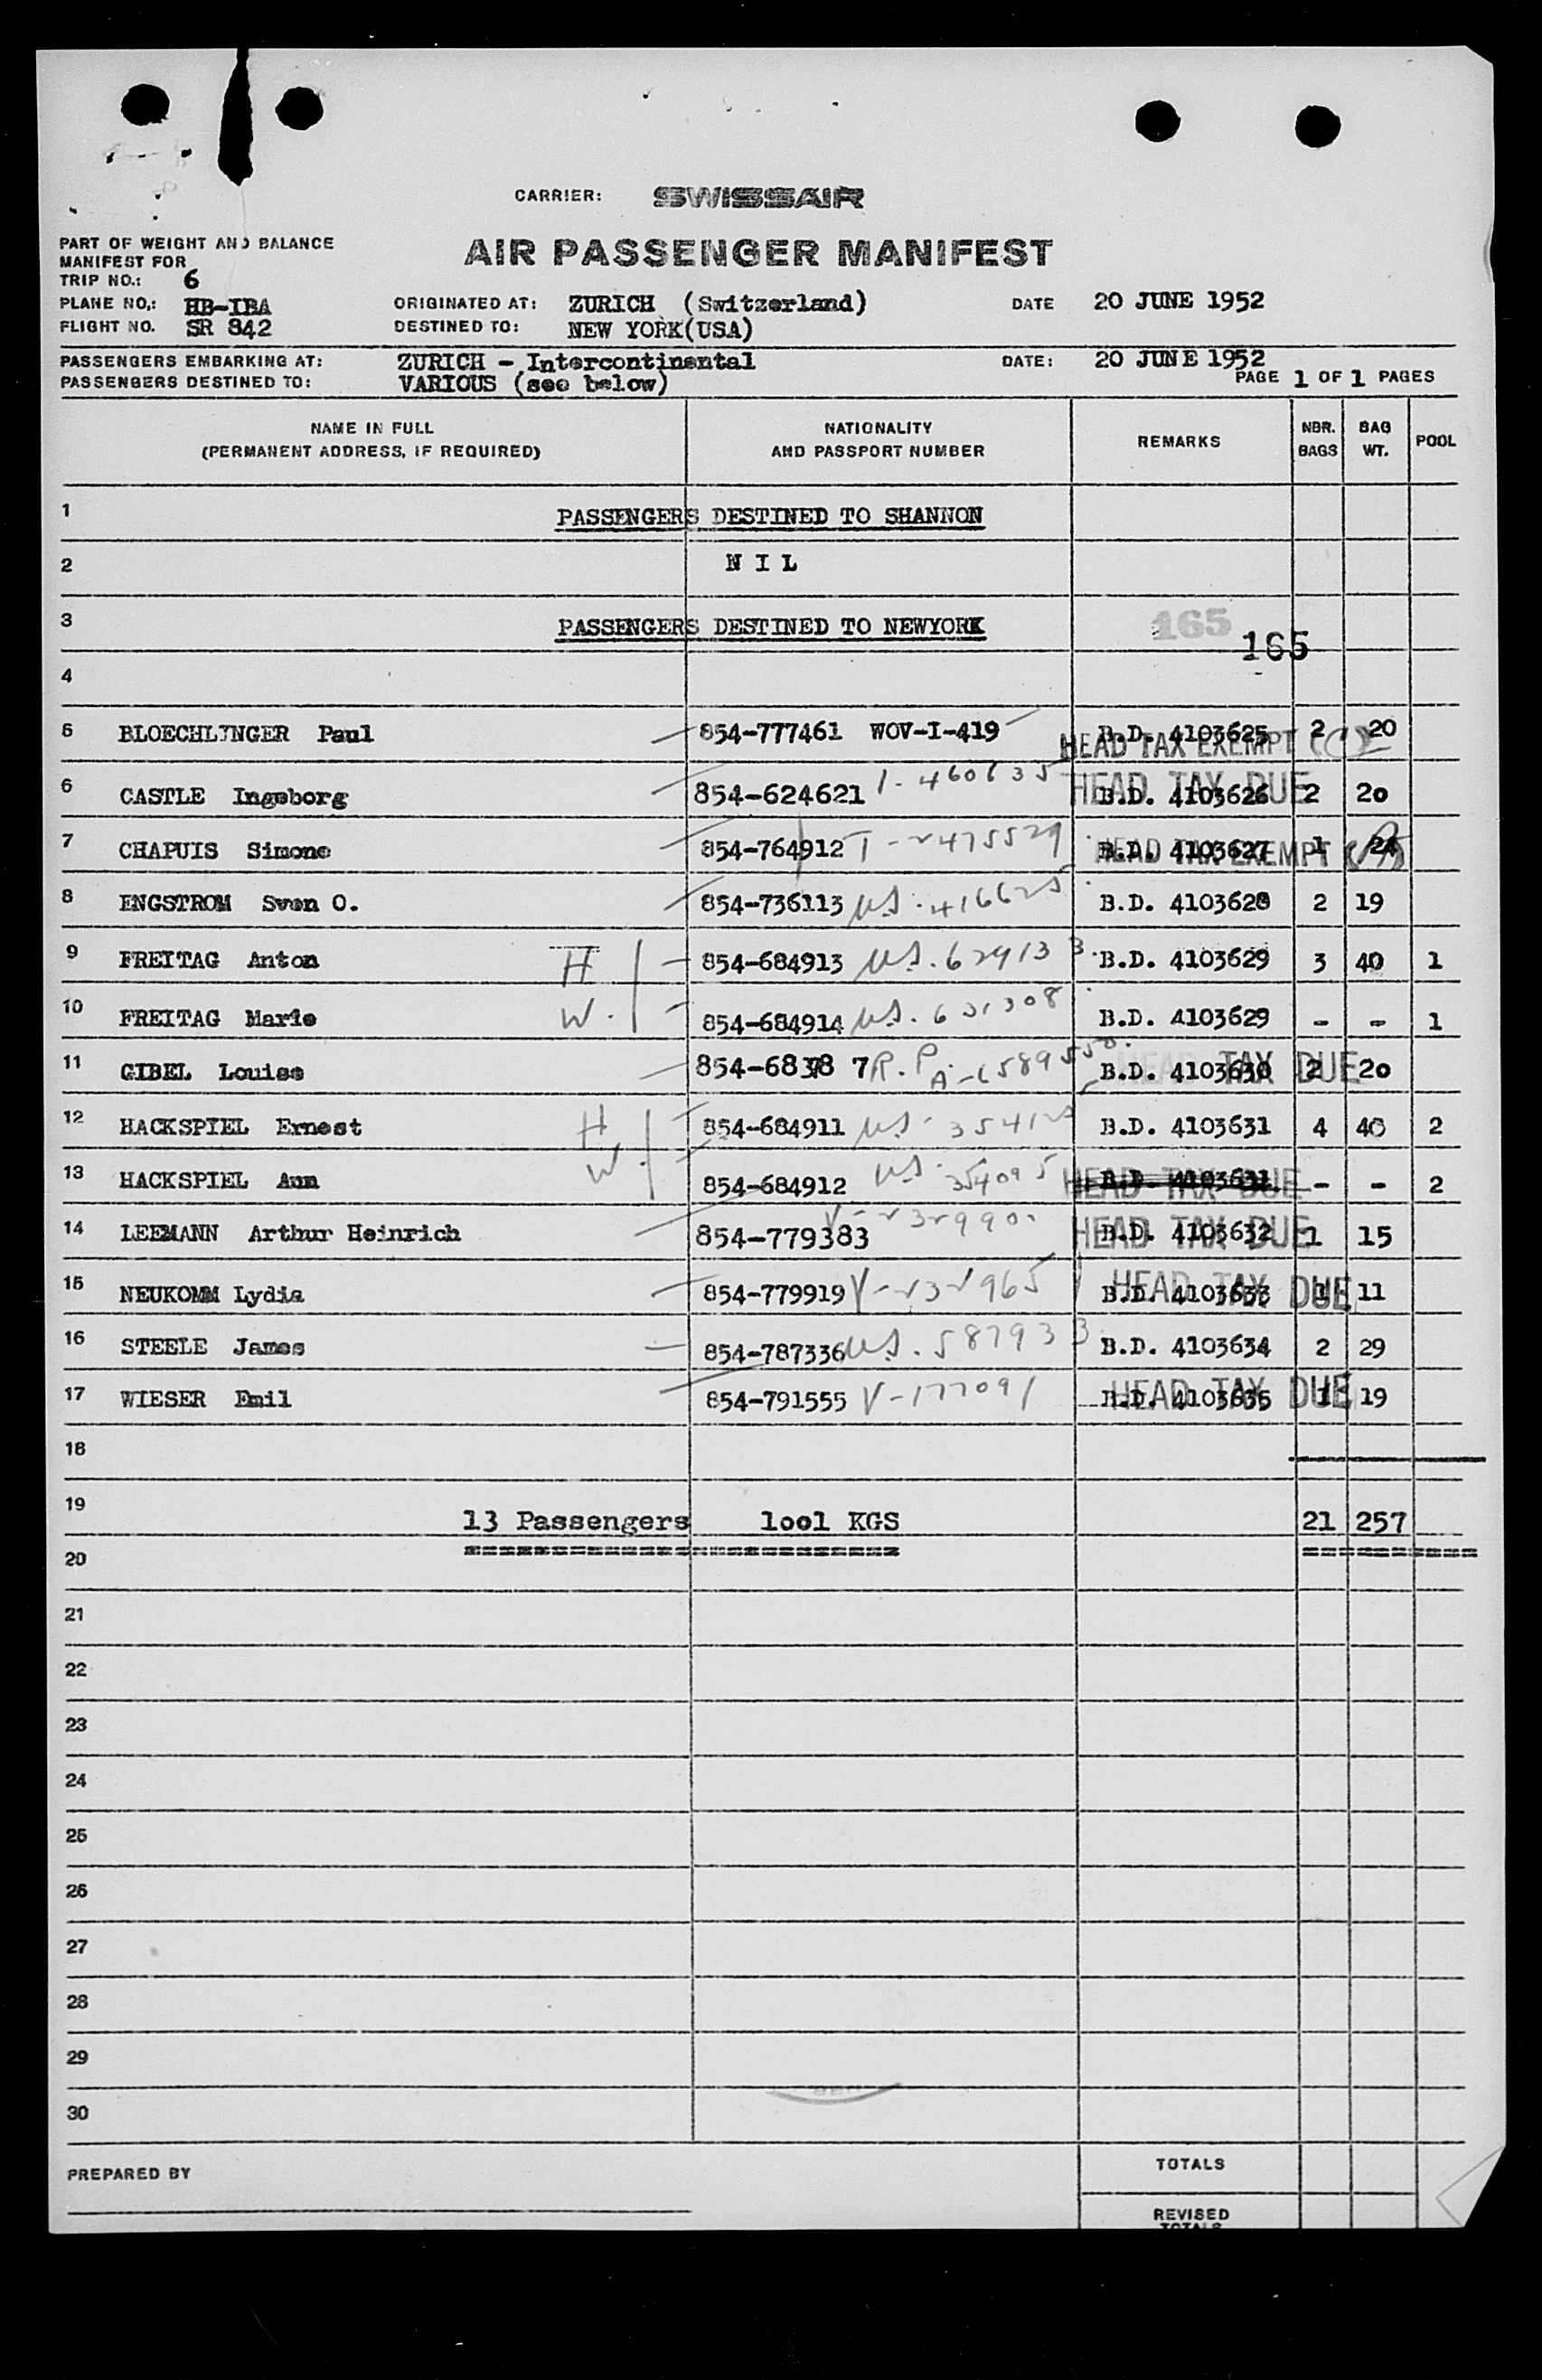 CARRIER: SWISSAIR
PART OF WEIGHT AND BALANCE
MANIFEST FOR
AIR PASSENGER MANIFEST
TRIP NO.: 6
PLANE NO.: HB-IBA ORIGINATED AT: ZURICH (Switzerland) DATE 20 JUNE 1952
FLIGHT NO. SR 842 DESTINED TO: NEW YORK(USA)
PASSENGERS EMBARKING AT: ZURICH - Intercontinental DATE: 20 JUNE 1952
PASSENGERS DESTINED TO: VARIOUS (see below) PAGE 1 OF 1 PAGES
NAME IN FULL NATIONALITY REMARKS NBR. BAG POOL
(PERMANENT ADDRESS, IF REQUIRED) AND PASSPORT NUMBER BAGS WT.
1 PASSENGERS DESTINED TO SHANNON
2 N I L
3 PASSENGERS DESTINED TO NEWYORK 165
165
4
5 BLOECHLINGER Paul 854-777461 WOV-I-419 B.D. 4103625 2 20
HEAD TAX EXEMPT
6 CASTLE Ingeborg 854-624621 I-460635 HEAD TAX DUE B.D. 4103626 2 20
7 CHAPUIS Simone 854-764912 T-2475529 HEAD TAX EXEMPT B.D. 4103627 1 24
8 ENGSTROM Sven O. 854-736113 US.416625 B.D. 4103628 2 19
9 FREITAG Anton H 854-684913 US.629133 B.D. 4103629 3 40 1
10 FREITAG Marie W. 854-684914 US.631308 B.D. 4103629 - - 1
11 GIBEL Louise 854-6838 7 R.P. A-6589550 HEAD TAX DUE B.D. 4103630 2 20
12 HACKSPIEL Ernest H 854-684911 US.354125 B.D. 4103631 4 40 2
13 HACKSPIEL Ann W. 854-684912 US.354095 HEAD TAX DUE B.D. 4103631 - - 2
14 LEEMANN Arthur Heinrich 854-779383 V-232990 HEAD TAX DUE B.D. 4103632 1 15
15 NEUKOMM Lydia 854-779919 V-232965 HEAD TAX DUE B.D. 4103633 1 11
16 STEELE James 854-787336 US.587933 B.D. 4103634 2 29
17 WIESER Emil 854-791555 V-177091 HEAD TAX DUE B.D. 4103635 1 19
18
19 13 Passengers 1001 KGS 21 257
20
21
22
23
24
25
26
27
28
29
30
PREPARED BY TOTALS
REVISED
TOTALS